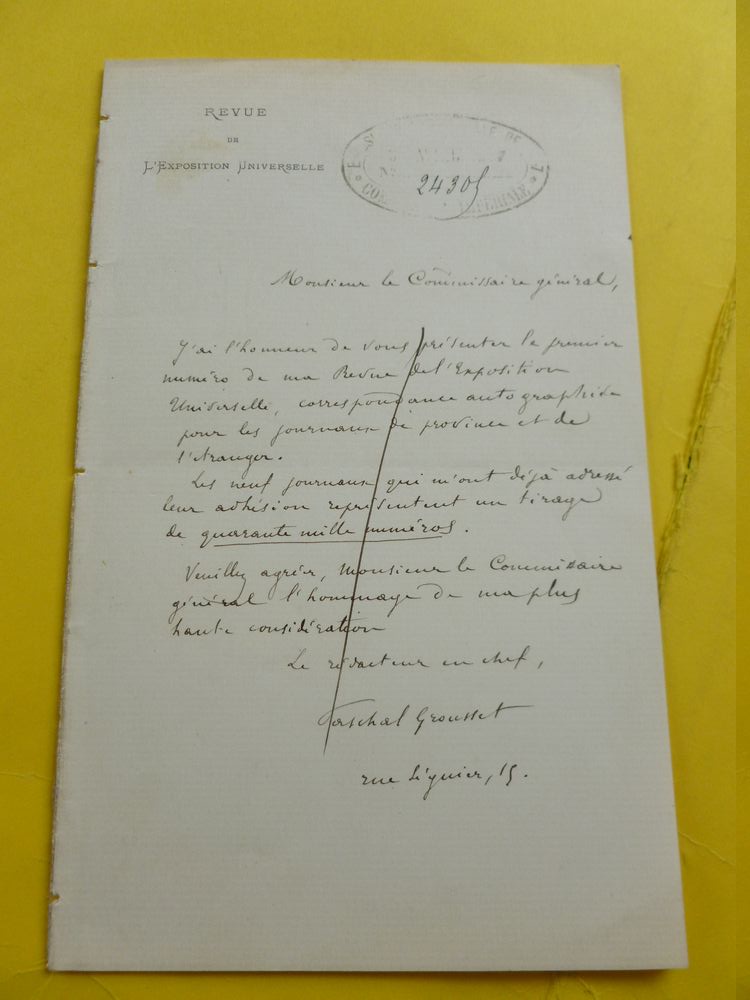 REVUE
DE
L'EXPOSITION UNIVERSELLE
24305
IMPÉRIALE
Monsieur le Commissaire général,
J'ai l'honneur de vous présenter le premier
numéro de ma Revue de l'Exposition
Universelle, correspondance autographiée
pour les journaux de province et de
l'étranger.
Les neuf journaux qui m'ont déjà adressé
leur adhésion représentent un tirage
de quarante mille numéros.
Veuillez agréer, Monsieur le Commissaire
général l'hommage de ma plus
haute considération
Le rédacteur en chef,
Paschal Grousset
rue Séguier, 15.